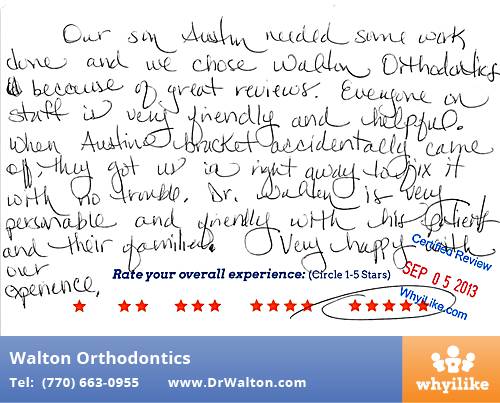 Our son Austin needed some work
done and we chose Walton Orthodontics
because of great reviews. Everyone on
staff is very friendly and helpful.
When Austins bracket accidentally came
off, they got us in right away to fix it
with no trouble. Dr. Walton is very
personable and friendly with his patients
and their families. Very happy with
our
experience.
Rate your overall experience: (Circle 1-5 Stars)
Certified Review
SEP 05 2013
WhyiLike.com
Walton Orthodontics
Tel: (770) 663-0955 www.DrWalton.com
whyilike